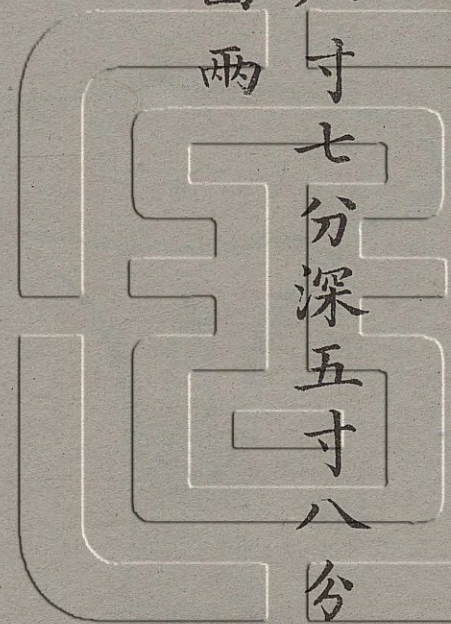 寸七分深五寸八分
兩